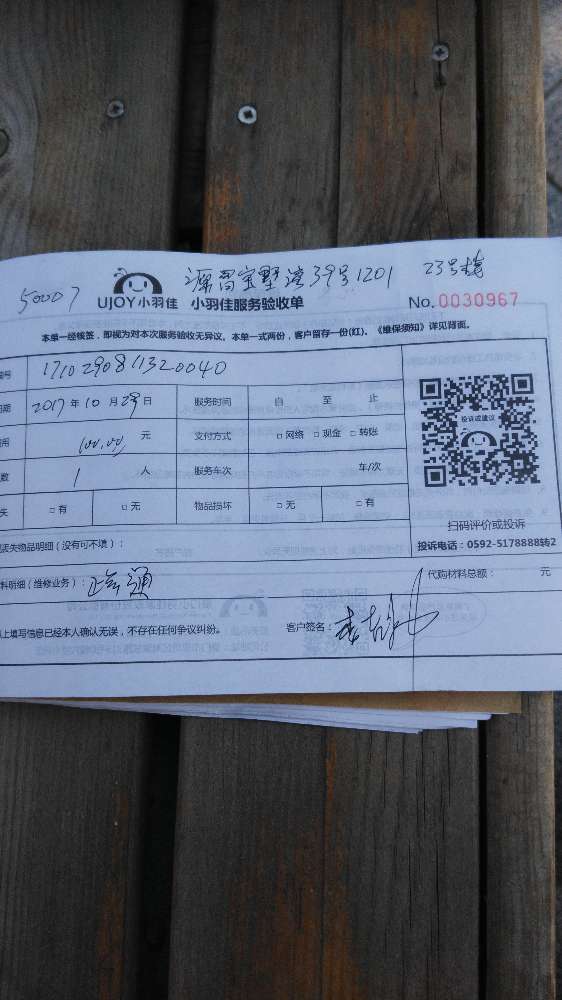 39号1201 23号楼
50007 UJOY小羽佳 小羽佳服务验收单 No.0030967
本单一经核签,即视为对本次服务验收无异议。本单一式两份,客户留存一份(红)。《维保须知》详见背面。
编号 1710290811320040
日期 2017年10月29日 服务时间 自 至 止
费用 100.00 元 支付方式 □网络 □现金 □转账
数 1 人 服务车次 车/次
失 □有 □无 物品损坏 □无 □有
投诉或建议
扫码评价或投诉
投诉电话:0592-5178888转2
丢失物品明细(没有可不填):
料明细(维修业务): 代购材料总额: 元
以上填写信息已经本人确认无误,不存在任何争议纠纷。 客户签名: